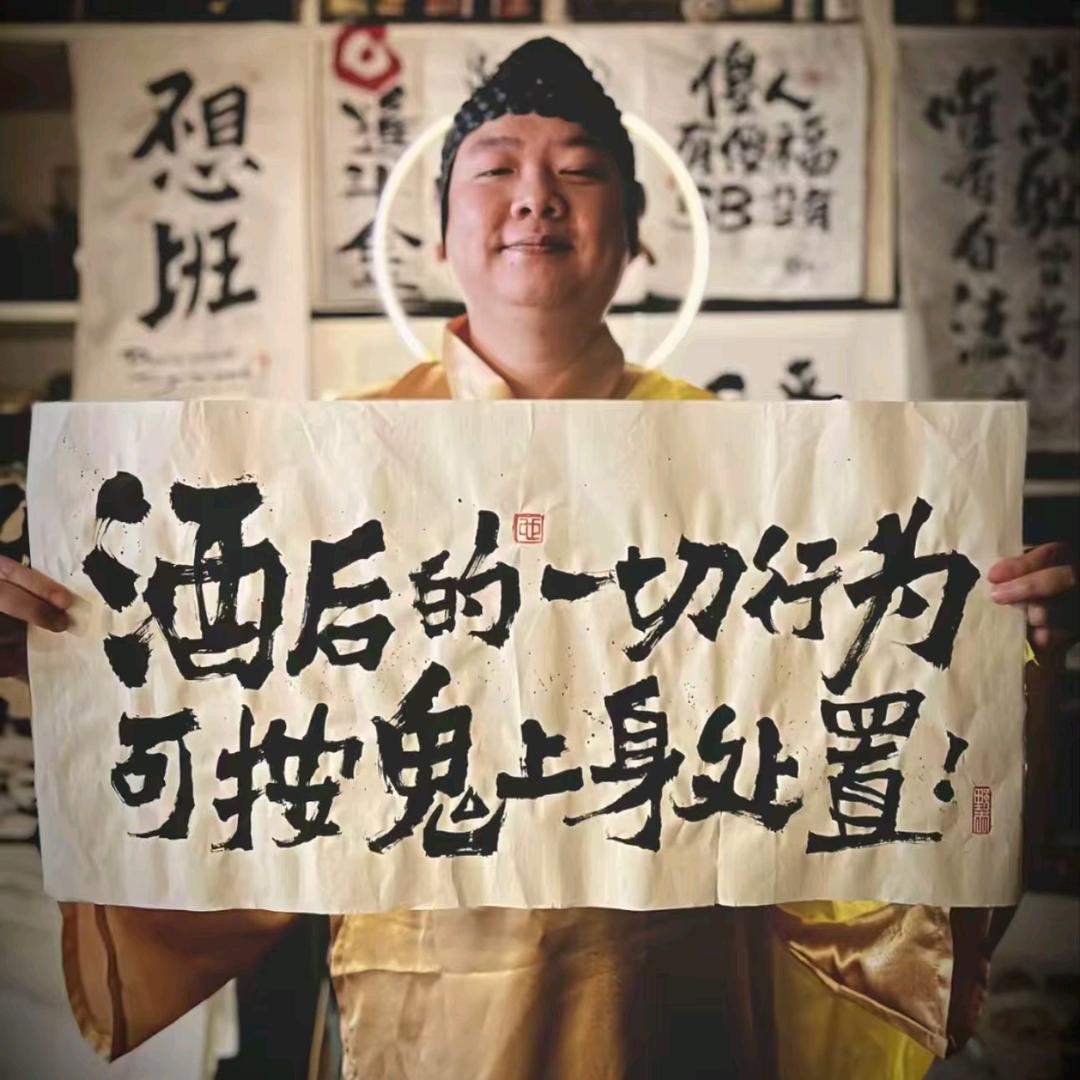 酒后的一切行为
可按鬼上身处置!
想
班
傻人
有傻福